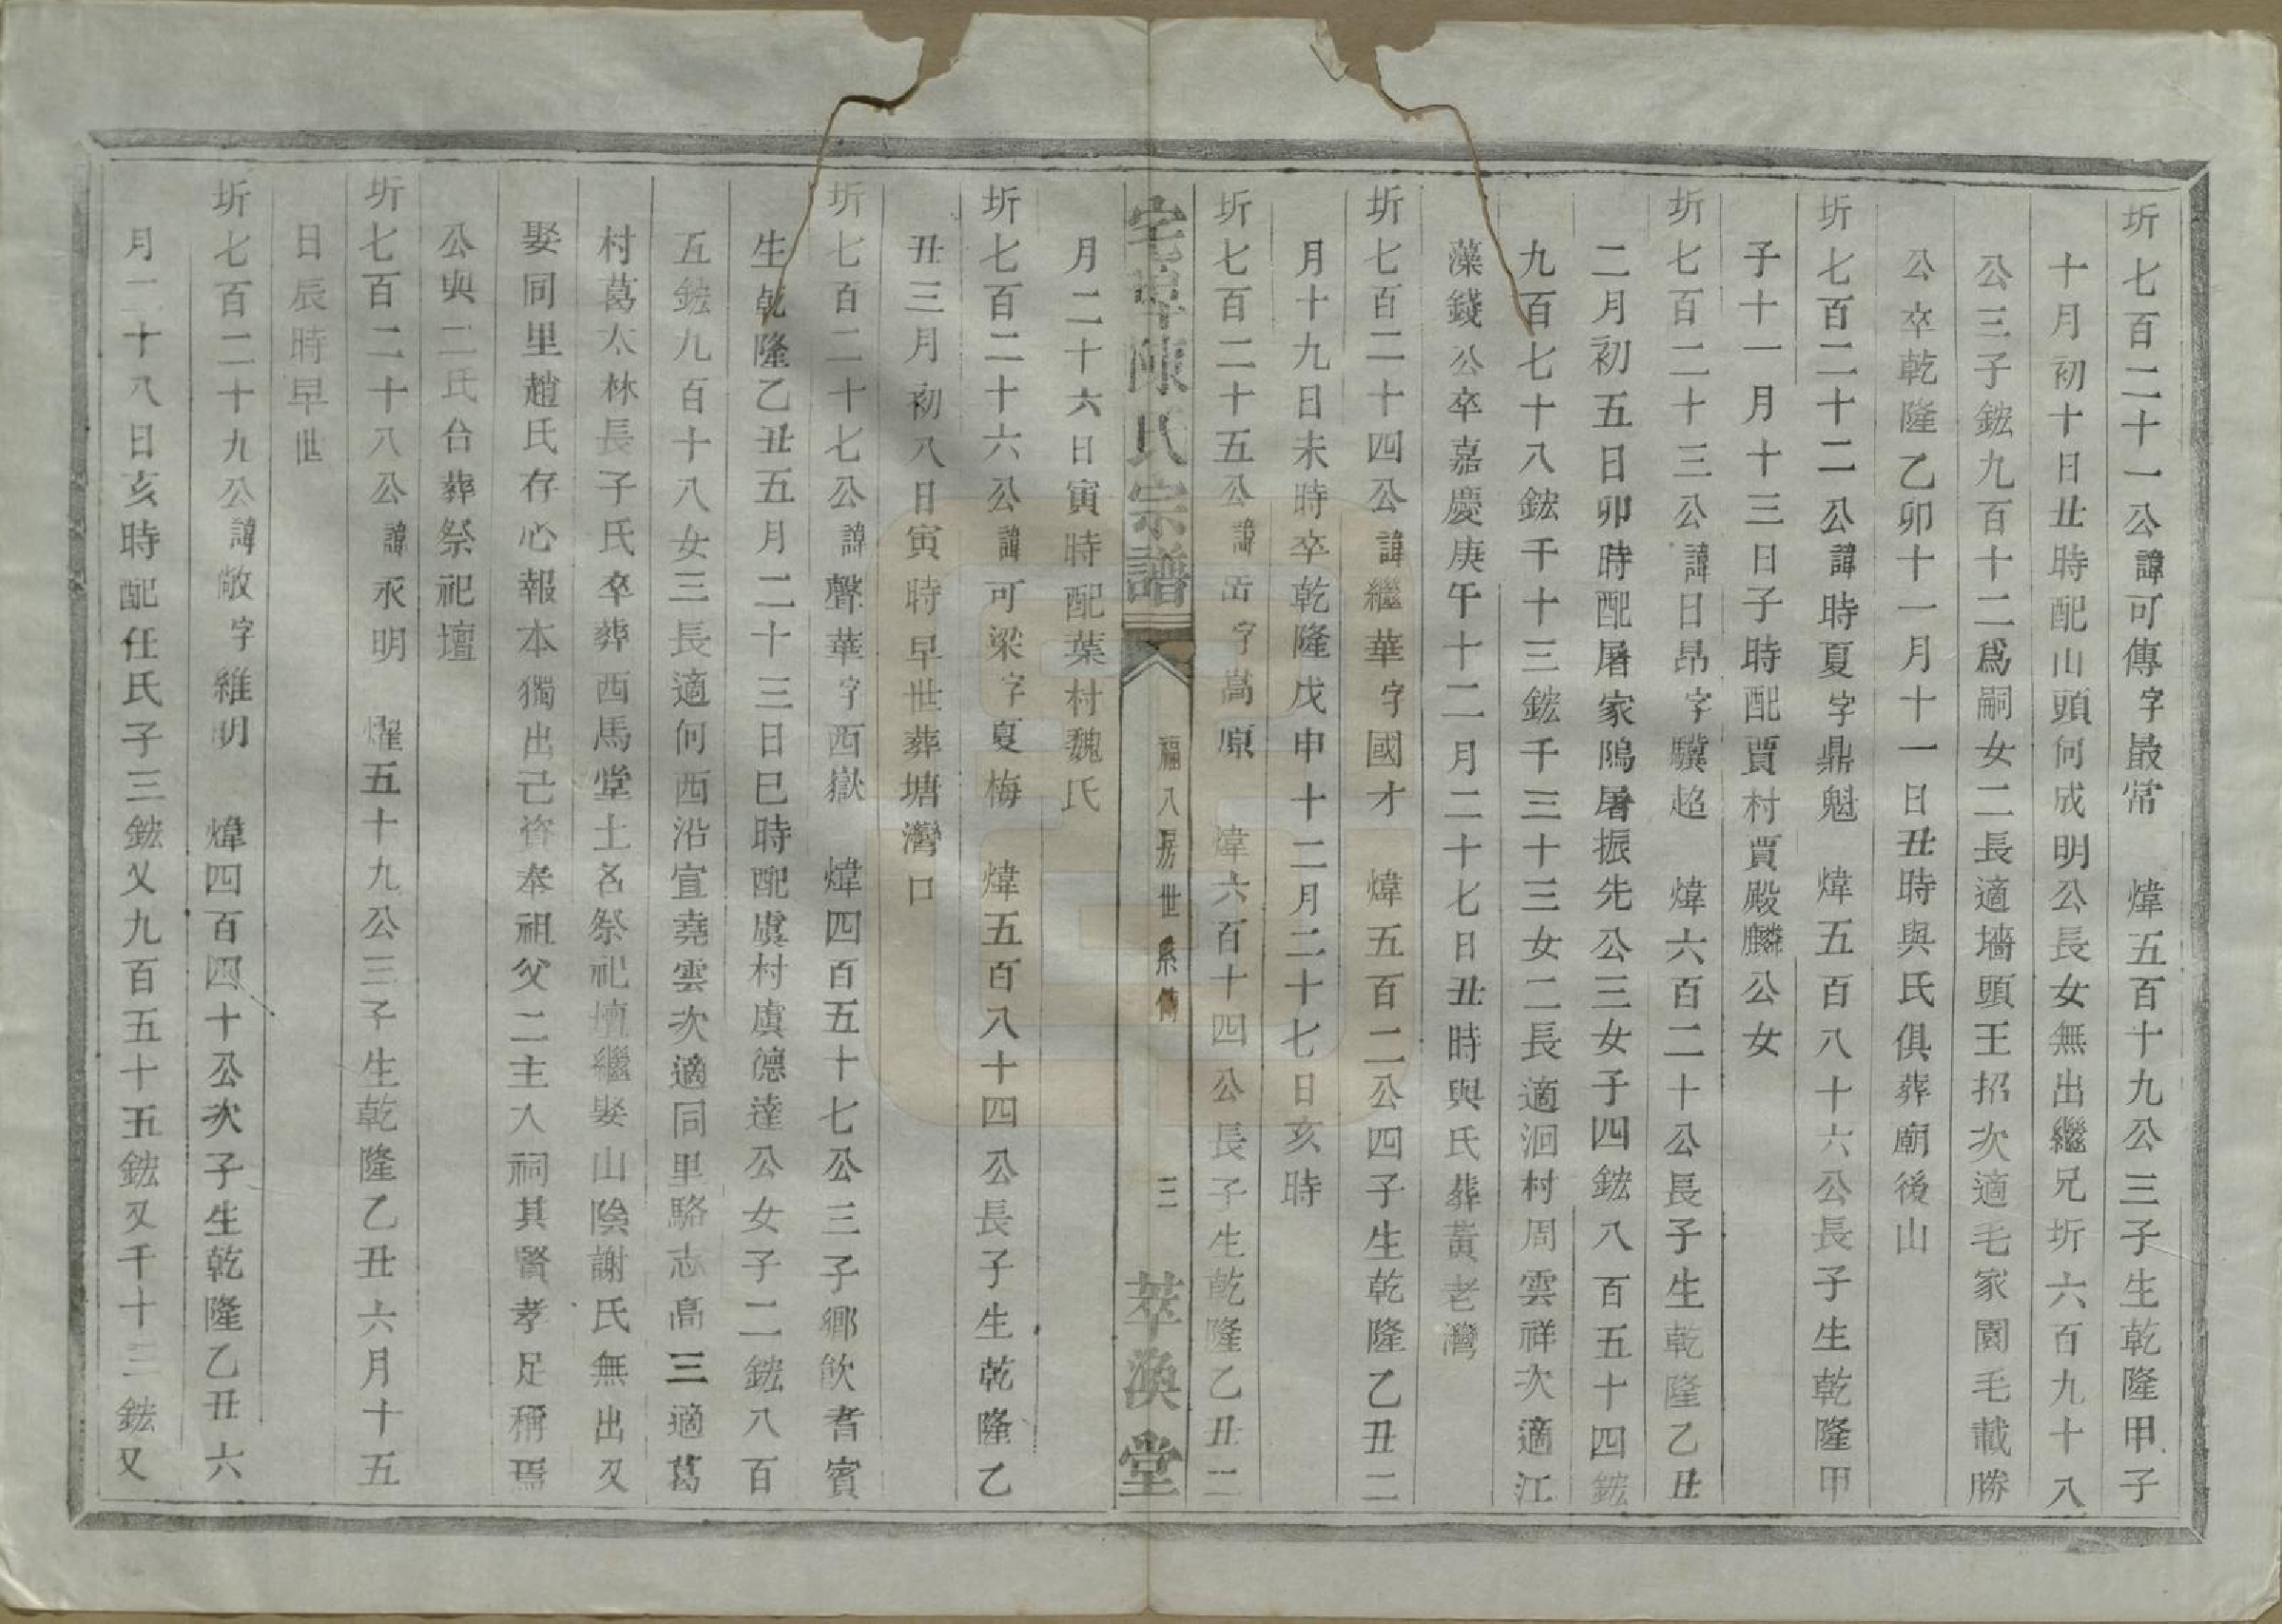 圻七百二十一公諱可傳字最常　煒五百十九公三子生乾隆甲子
十月初十日丑時配山頭何成明公長女無出繼兄圻六百九十八
公三子鋐九百十二爲嗣女二長適墻頭王招次適毛家園毛載勝
公卒乾隆乙卯十一月十一日丑時與氏俱葬廟後山
圻七百二十二公諱時夏字鼎魁　煒五百八十六公長子生乾隆甲
子十一月十三日子時配賈村賈殿麟公女
圻七百二十三公諱日昂字驥超　煒六百二十公長子生乾隆乙丑
二月初五日卯時配屠家隖屠振先公三女子四鋐八百五十四鋐
九百七十八鋐千十三鋐千三十三女二長適泂村周雲祥次適江
藻錢公卒嘉慶庚午十二月二十七日丑時與氏葬黃老灣
圻七百二十四公諱繼華字國才　煒五百二公四子生乾隆乙丑二
月十九日未時卒乾隆戊申十二月二十七日亥時
圻七百二十五公諱岳字嵩原　煒六百十四公長子生乾隆乙丑二
宅埠陳氏宗譜　福八房世系傳　三　萃渙堂
月二十六日寅時配葉村魏氏
圻七百二十六公諱可梁字夏梅　煒五百八十四公長子生乾隆乙
丑三月初八日寅時早世葬塘灣口
圻七百二十七公諱聲華字西嶽　煒四百五十七公三子鄉飲耆賓
生乾隆乙丑五月二十三日巳時配虞村虞德達公女子二鋐八百
五鋐九百十八女三長適何西沿宣堯雲次適同里駱志高三適葛
村葛太林長子氏卒葬西馬堂土名祭祀壇繼娶山陰謝氏無出又
娶同里趙氏存心報本獨出己咨奉祖父二主入祠其賢孝足稱焉
公與二氏台葬祭祀壇
圻七百二十八公諱永明　燿五十九公三子生乾隆乙丑六月十五
日辰時早世
圻七百二十九公諱敞字維明　煒四百四十公次子生乾隆乙丑六
月二十八日亥時配任氏子三鋐又九百五十五鋐又千十三鋐又